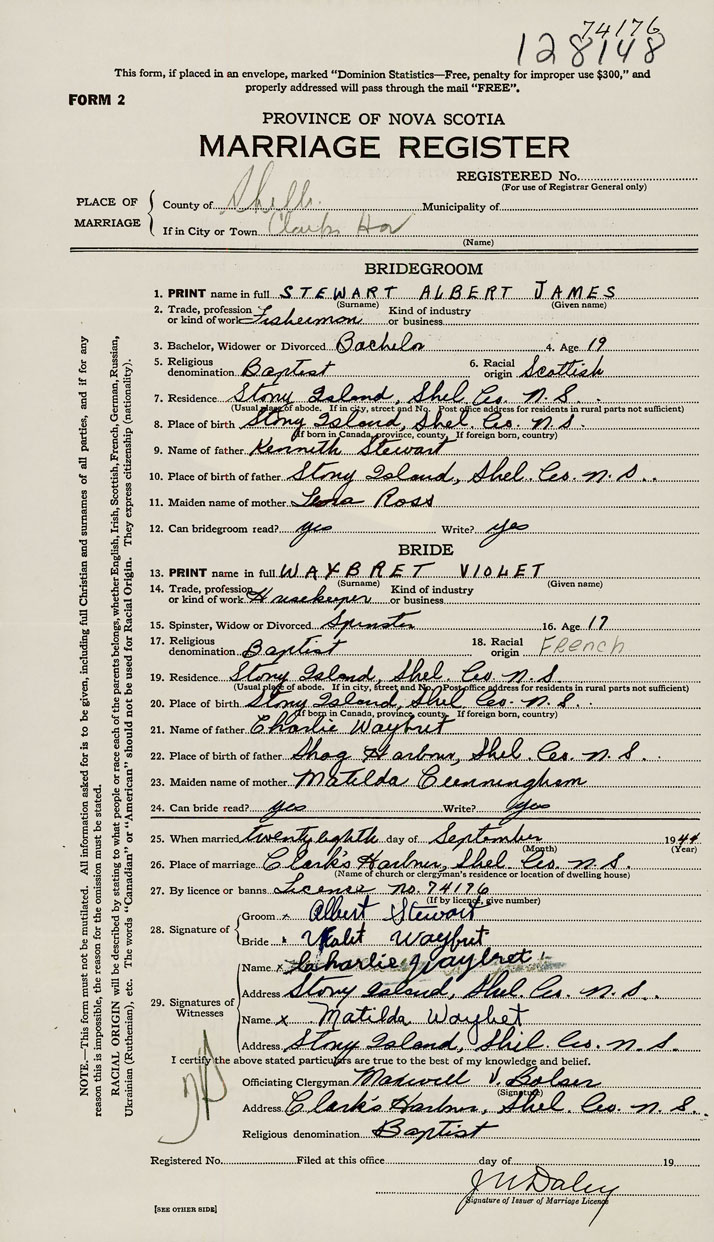 74176
128148
This form, if placed in an envelope, marked "Dominion Statistics—Free, penalty for improper use $300," and
properly addressed will pass through the mail "FREE".
FORM 2
PROVINCE OF NOVA SCOTIA
MARRIAGE REGISTER
REGISTERED No.
(For use of Registrar General only)
PLACE OF MARRIAGE
County of Shelb. Municipality of
If in City or Town Clarks Har
(Name)
BRIDEGROOM
1. PRINT name in full STEWART ALBERT JAMES
(Surname) (Given name)
2. Trade, profession or kind of work Fisherman Kind of industry or business
3. Bachelor, Widower or Divorced Bachelor 4. Age 19
5. Religious denomination Baptist 6. Racial origin Scottish
7. Residence Stony Island, Shel. Co. N.S.
(Usual place of abode. If in city, street and No. Post office address for residents in rural parts not sufficient)
8. Place of birth Stony Island, Shel. Co. N.S.
(If born in Canada, province, county. If foreign born, country)
9. Name of father Kenneth Stewart
10. Place of birth of father Stony Island, Shel. Co. N.S.
11. Maiden name of mother Lena Ross
12. Can bridegroom read? yes Write? yes
BRIDE
13. PRINT name in full WAYBRET VIOLET
(Surname) (Given name)
14. Trade, profession or kind of work Housekeeper Kind of industry or business
15. Spinster, Widow or Divorced Spinster 16. Age 17
17. Religious denomination Baptist 18. Racial origin French
19. Residence Stony Island, Shel. Co. N.S.
(Usual place of abode. If in city, street and No. Post office address for residents in rural parts not sufficient)
20. Place of birth Stony Island, Shel. Co. N.S.
(If born in Canada, province, county. If foreign born, country)
21. Name of father Charlie Waybret
22. Place of birth of father Shag Harbour, Shel. Co. N.S.
23. Maiden name of mother Matilda Cunningham
24. Can bride read? yes Write? yes
25. When married twenty eighth day of September 1944
(Month) (Year)
26. Place of marriage Clark's Harbour, Shel. Co. N.S.
(Name of church or clergyman's residence or location of dwelling house)
27. By licence or banns License no. 74176
(If by licence, give number)
28. Signature of Groom x Albert Stewart
Bride x Violet Waybret
29. Signatures of Witnesses Name x Charlie Waybret
Address Stony Island, Shel. Co. N.S.
Name x Matilda Waybret
Address Stony Island, Shel. Co. N.S.
I certify the above stated particulars are true to the best of my knowledge and belief.
Officiating Clergyman Maxwell V. Bolser
(Signature)
Address Clark's Harbour, Shel. Co. N.S.
Religious denomination Baptist
Registered No. Filed at this office day of 19
J W Daley
Signature of Issuer of Marriage Licence
[SEE OTHER SIDE]
NOTE.—This form must not be mutilated. All information asked for is to be given, including full Christian and surnames of all parties, and if for any
reason this is impossible, the reason for the omission must be stated.
RACIAL ORIGIN will be described by stating to what people or race each of the parents belongs, whether English, Irish, Scottish, French, German, Russian,
Ukrainian (Ruthenian), etc. The words "Canadian" or "American" should not be used for Racial Origin. They express citizenship (nationality).